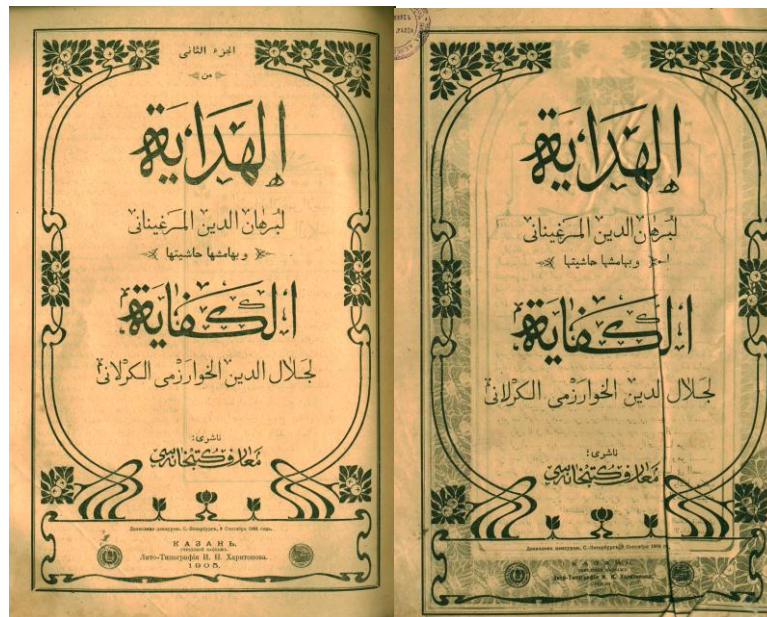 الجزء الثانى
من
الهداية
لبرهان الدين المرغينانى
وبهامشها حاشيتها
الكفاية
لجلال الدين الخوارزمى الكرلانى
ناشرى:
معارف كتبخانه سى
Дозволено цензурою. С.-Петербургъ, 8 Сентября 1904 года.
КАЗАНЬ.
Лито-Типографія И. Н. Харитонова.
1905.
الهداية
لبرهان الدين المرغينانى
وبهامشها حاشيتها
الكفاية
لجلال الدين الخوارزمى الكرلانى
ناشرى:
معارف كتبخانه سى
Дозволено цензурою. С.-Петербургъ, 8 Сентября
КАЗАНЬ.
Лито-Типографія И. Н. Харитонова.